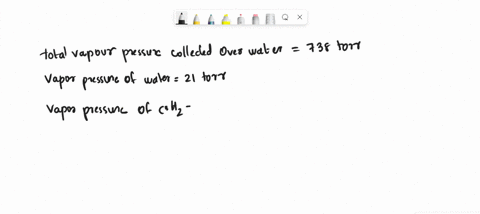 total vapour pressure collected over water = 738 torr
Vapor pressure of water = 21 torr
Vapor pressure of C2H2 -